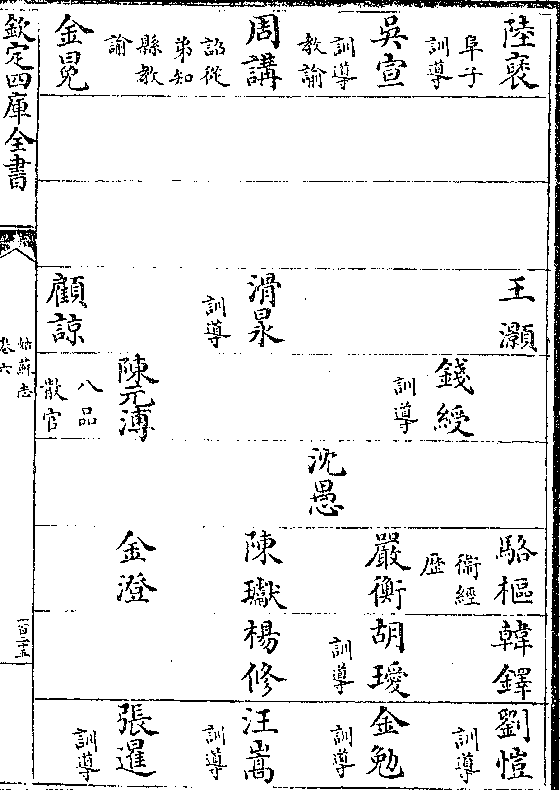 陸褎
阜子
訓導
吳宣
訓導
教諭
周講
詔從
弟知
縣教
諭
金冕
王灝
滑
訓導
顧諒
錢綬
訓導
陳元溥
八品
散官
沈愚
駱樞
衞經
歴
嚴衡
陳瓛
金澄
韓鐸
胡璦
訓導
楊修
劉愷
訓導
金勉
訓導
汪嵩
訓導
張暹
訓導
欽定四庫全書
姑蘇志
卷六
一百二十五